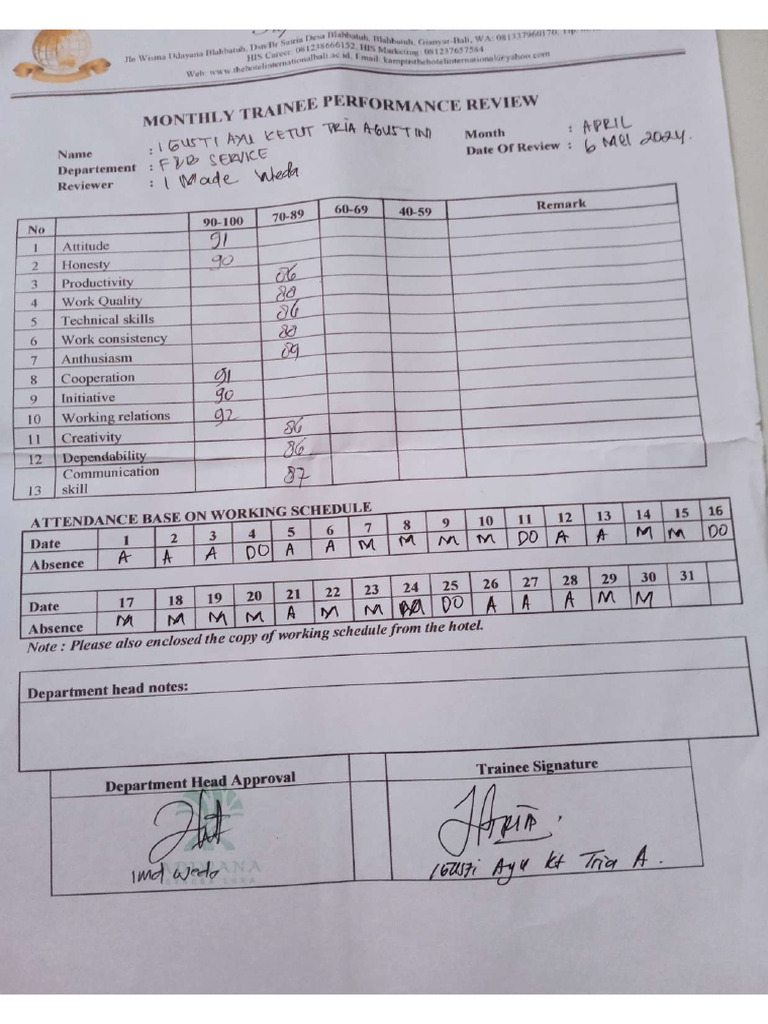 Jln Wisma Udayana Blahbatuh, Dsn/Br Satria Desa Blahbatuh, Blahbatuh, Gianyar-Bali, WA: 081337960170,
HIS Career: 081238666152, HIS Marketing: 081237657584
Web: www.thehotelinternationalbali.ac.id, Email: kampusthehotelinternational@yahoo.com
MONTHLY TRAINEE PERFORMANCE REVIEW
Name : I GUSTI AYU KETUT TRIA AGUSTINI Month : APRIL
Departement : F&B SERVICE Date Of Review : 6 MEI 2024.
Reviewer : I Made Weda
No 90-100 70-89 60-69 40-59 Remark
1 Attitude 91
2 Honesty 90
3 Productivity 86
4 Work Quality 88
5 Technical skills 86
6 Work consistency 88
7 Anthusiasm 89
8 Cooperation 91
9 Initiative 90
10 Working relations 92
11 Creativity 86
12 Dependability 86
13 Communication skill 87
ATTENDANCE BASE ON WORKING SCHEDULE
Date 1 2 3 4 5 6 7 8 9 10 11 12 13 14 15 16
Absence A A A DO A A M M M M DO A A M M DO
Date 17 18 19 20 21 22 23 24 25 26 27 28 29 30 31
Absence M M M M A M M DO A A A M M
Note : Please also enclosed the copy of working schedule from the hotel.
Department head notes:
Department Head Approval Trainee Signature
ADIWANA
TRIA.
Imd Weda I Gusti Ayu Kt Tria A.